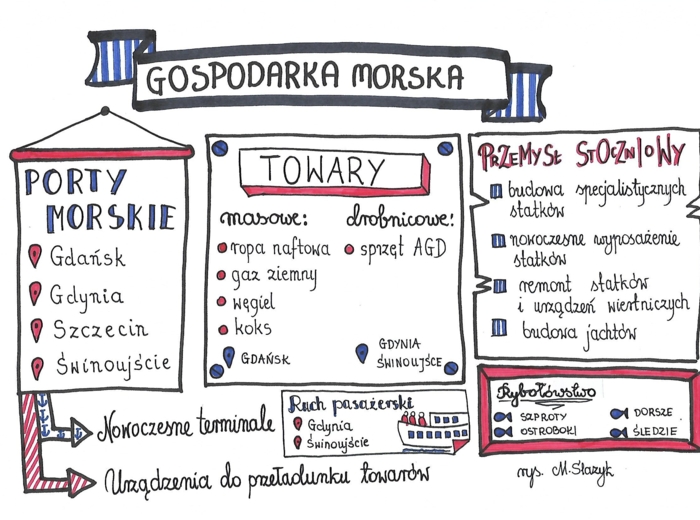 GOSPODARKA MORSKA
PORTY
MORSKIE
Gdańsk
Gdynia
Szczecin
Świnoujście
Nowoczesne terminale
Urządzenia do przeładunku towarów
TOWARY
masowe:
ropa naftowa
gaz ziemny
węgiel
koks
GDAŃSK
drobnicowe:
sprzęt AGD
GDYNIA
ŚWINOUJŚCE
Ruch pasażerski
Gdynia
Świnoujście
PRZEMYSŁ STOCZNIOWY
budowa specjalistycznych
statków
nowoczesne wyposażenie
statków
remont statków
i urządzeń wiertniczych
budowa jachtów
Rybołówstwo
SZPROTY
OSTROBOKI
DORSZE
ŚLEDZIE
rys. M.Ślazyk